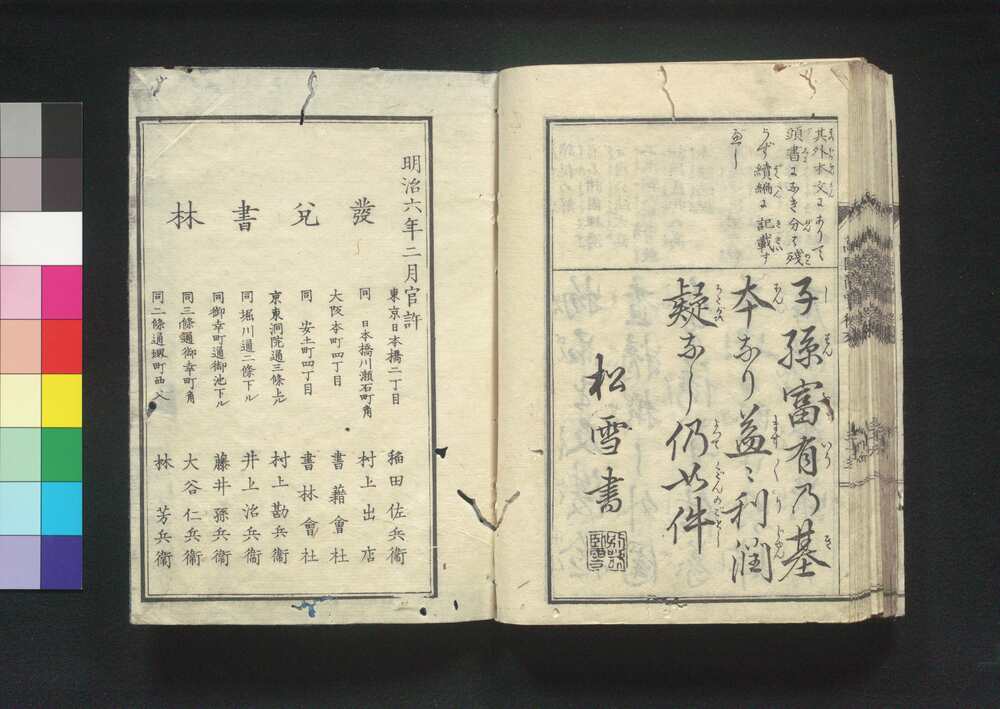 其外本文にありて
頭書になき分は残
らず續編に記載す
べし
子孫富有乃基
本なり益〻利潤
疑なし仍如件
松雪書
明治六年二月官許
發兌書林
東京日本橋二丁目 稲田佐兵衞
同 日本橋川瀬石町角 村上出店
大阪本町四丁目 書藉會社
同 安土町四丁目 書林會社
京東洞院通三條上ル 村上勘兵衞
同堀川通二條下ル 井上治兵衞
同御幸町通御池下ル 藤井孫兵衞
同三條通御幸町角 大谷仁兵衞
同二條通堺町西入 林芳兵衞